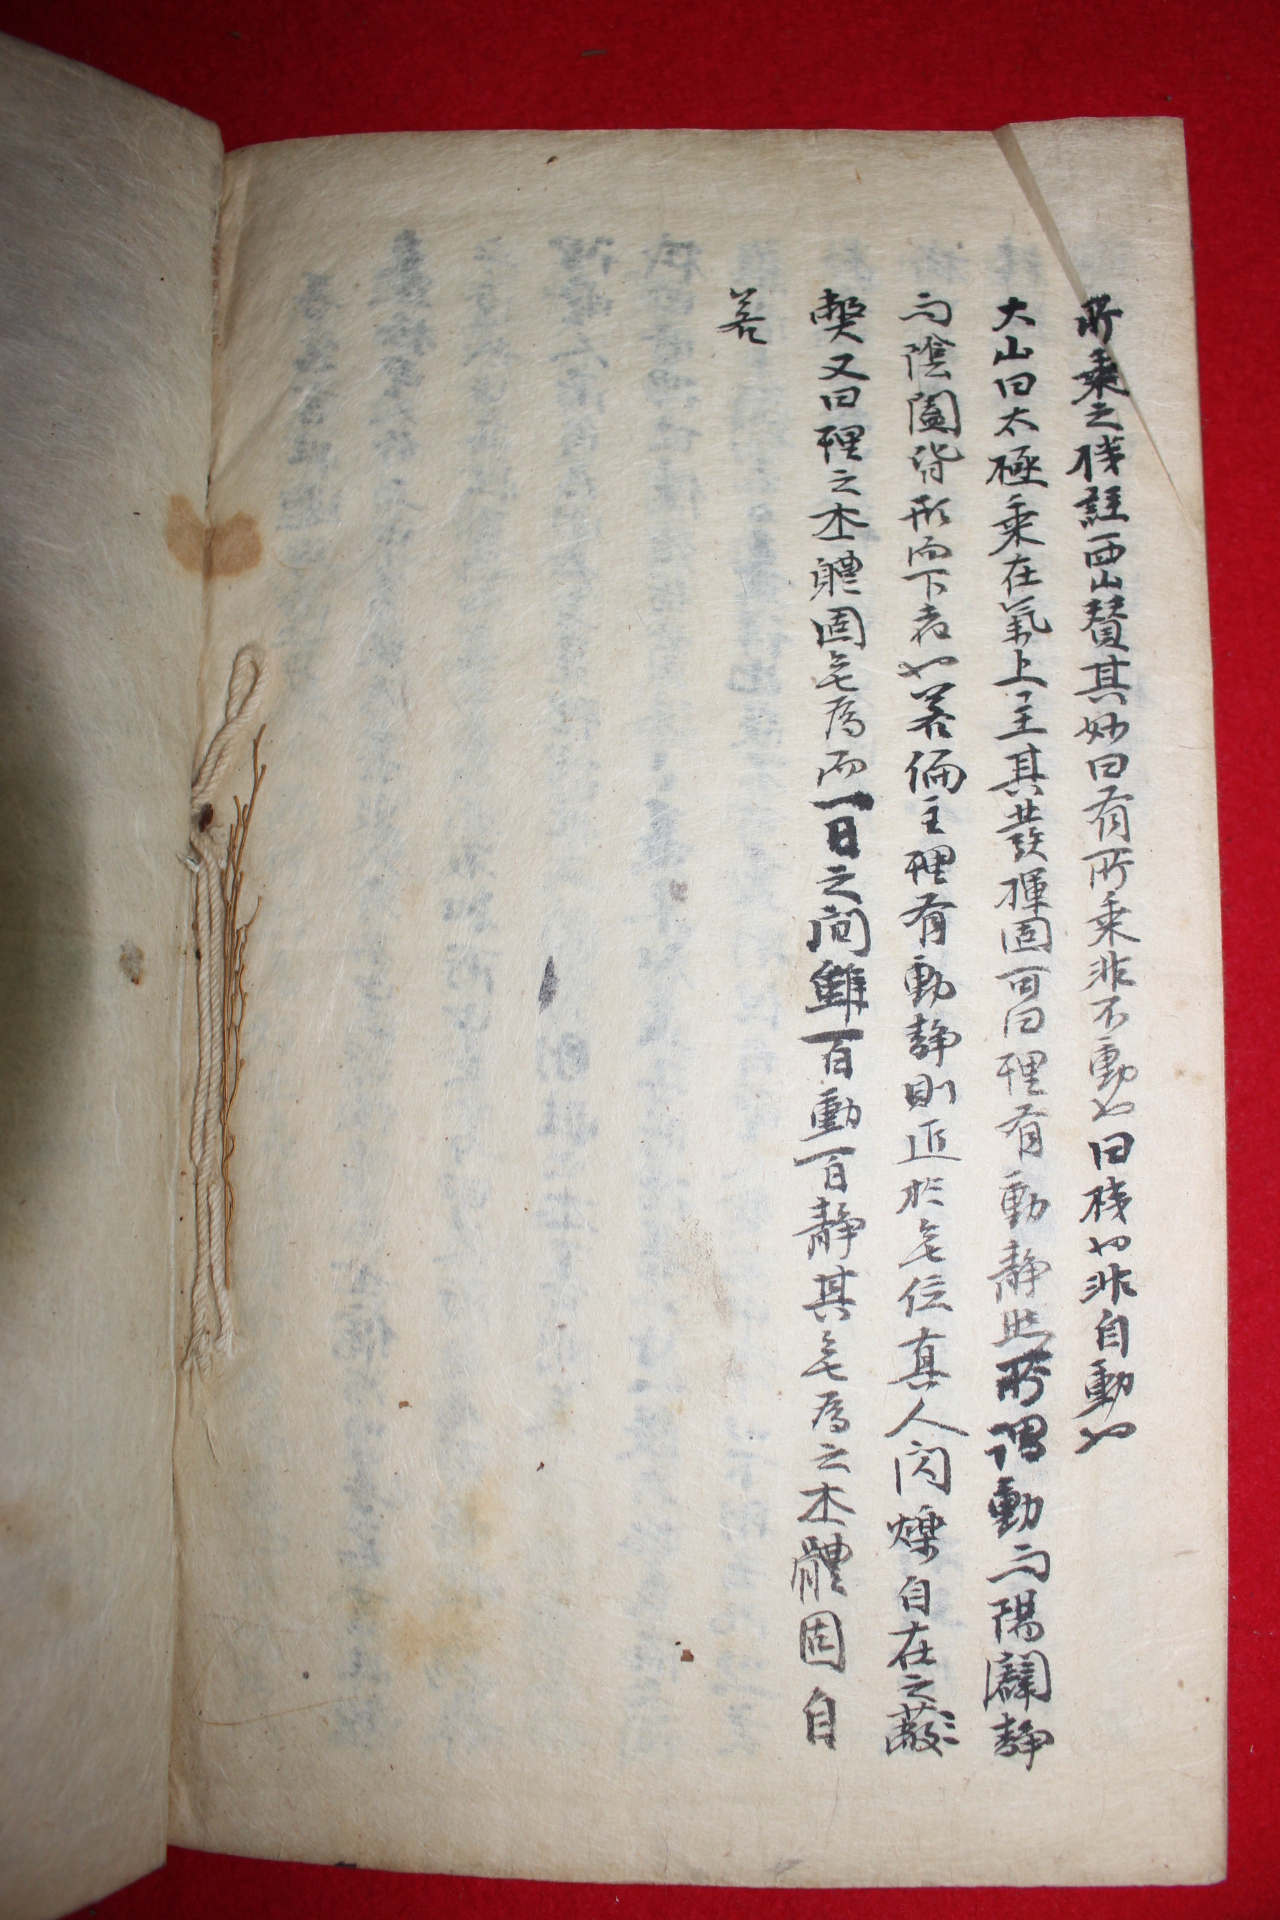 所乘之機註西山贊其妙曰有所乘非不動也曰機也非自動也
大山曰太極乘在氣上主其發揮固可曰理有動靜然所謂動而陽闢靜
而陰闔皆形而下者也若偏主理有動靜則近於無位真人閃爍自在之蔽
契又曰理之本軆固無爲而一日之間雖百動百靜其無爲之本體固自
若